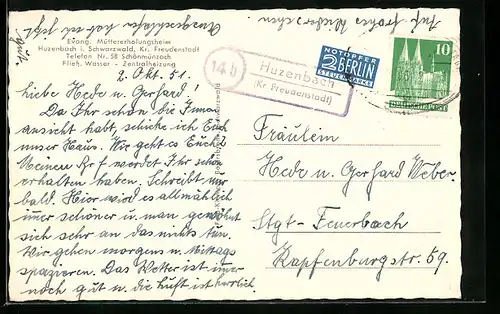 Evang. Müttererholungsheim
Huzenbach i. Schwarzwald, Kr. Freudenstadt
Telefon Nr. 58 Schönmünzach
Fließ. Wasser - Zentralheizung
2. Okt. 51.
Liebe Hede u. Gerhard!
Da Ihr schon die Innen
ansicht habt, schicke ich Euch
unser Haus. Wie geht es Euch?
Meinen Brf werdet Ihr schon
erhalten haben. Schreibt mir
bald. Hier wird es allmählich
immer schöner u. man gewöhnt
sich sehr an das nichts tun.
Wir gehen morgens u. Mittags
spazieren. Das Wetter ist immer
noch gut u. die Luft ist herrlich.
Auf frohes Wiedersehen
14b
Huzenbach
(Kr. Freudenstadt)
NOTOPFER
2 BERLIN
STEUERMARKE
10
DEUTSCHE POST
Fräulein
Hede u. Gerhard Weber.
Stgt-Feuerbach
Kapfenburgstr. 59.